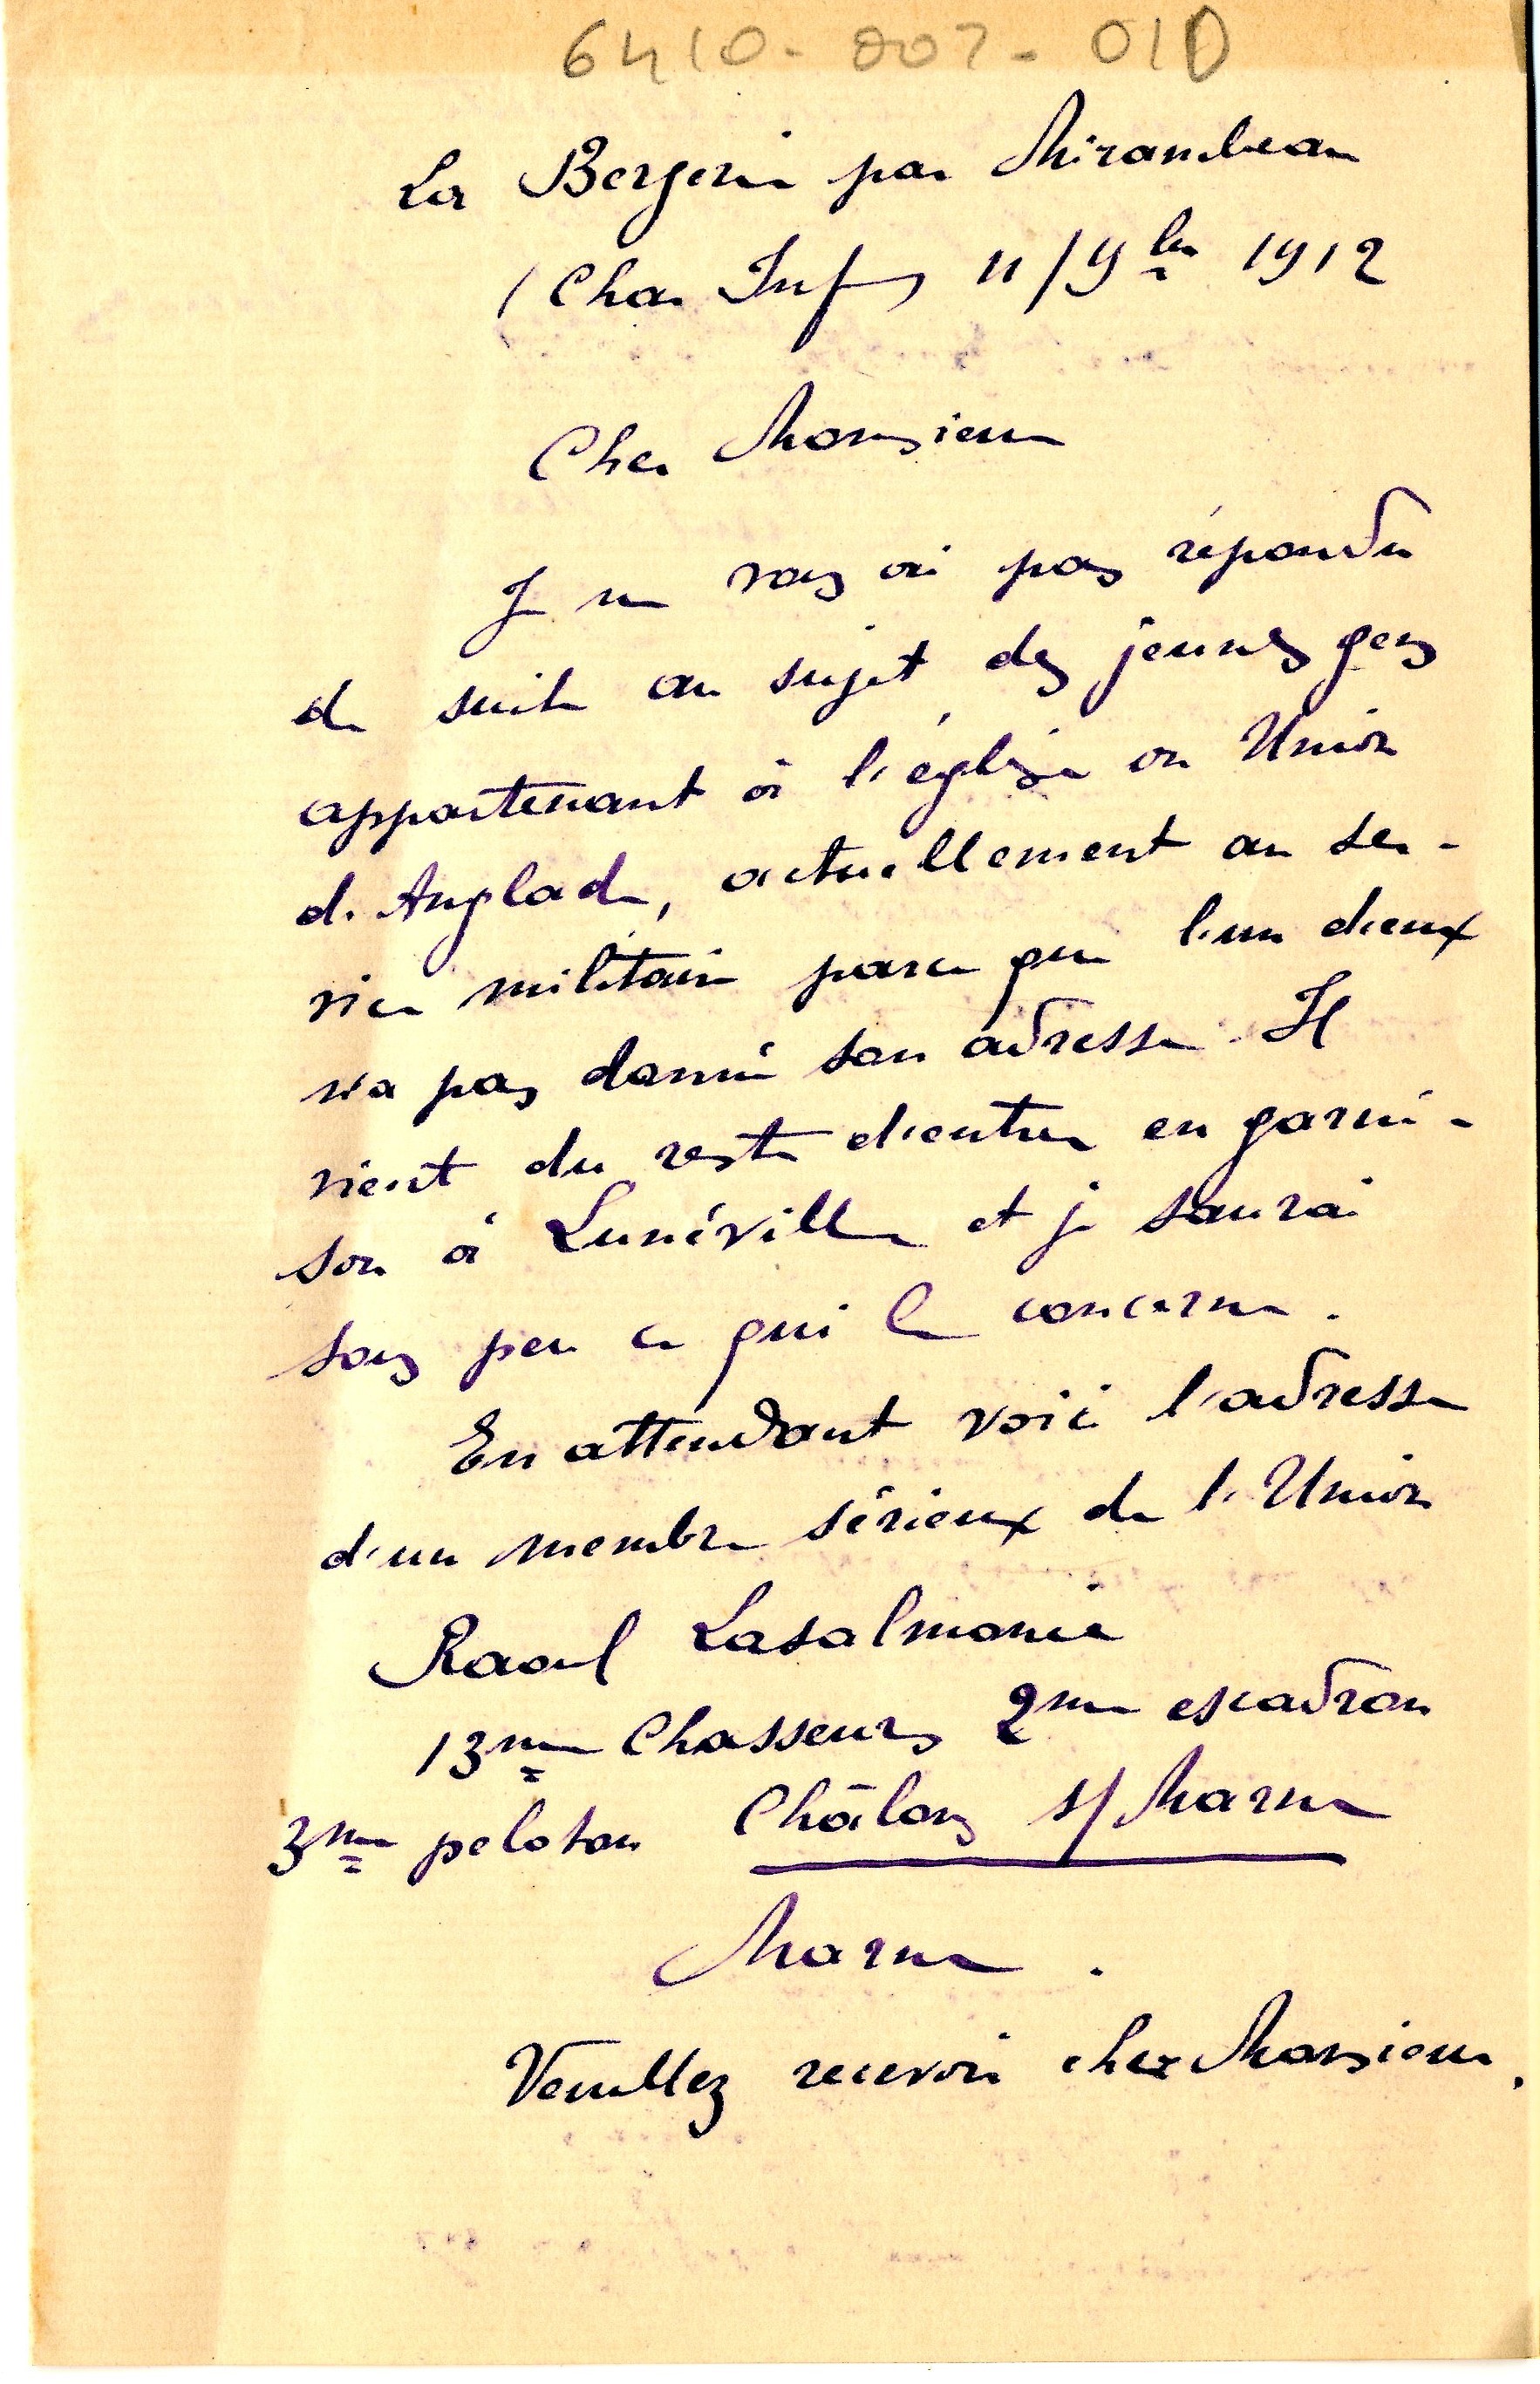 6410-007-01D
La Bergerie par Mirambeau
(Char Inf) 11/9bre 1912
Cher Monsieur
Je ne vous ai pas répondu
de suite au sujet des jeunes gens
appartenant à l'église ou Union
d'Anglade, actuellement au ser-
vice militaire parce que l'un d'eux
n'a pas donné son adresse. Il
vient du reste d'entrer en garni-
son à Lunéville et je saurai
sous peu ce qui le concerne.
En attendant voici l'adresse
d'un membre sérieux de l'Union
Raoul Lasalmonie
13me Chasseurs 2me escadron
3me peloton Châlons s/ Marne
Marne.
Veuillez recevoir cher Monsieur,